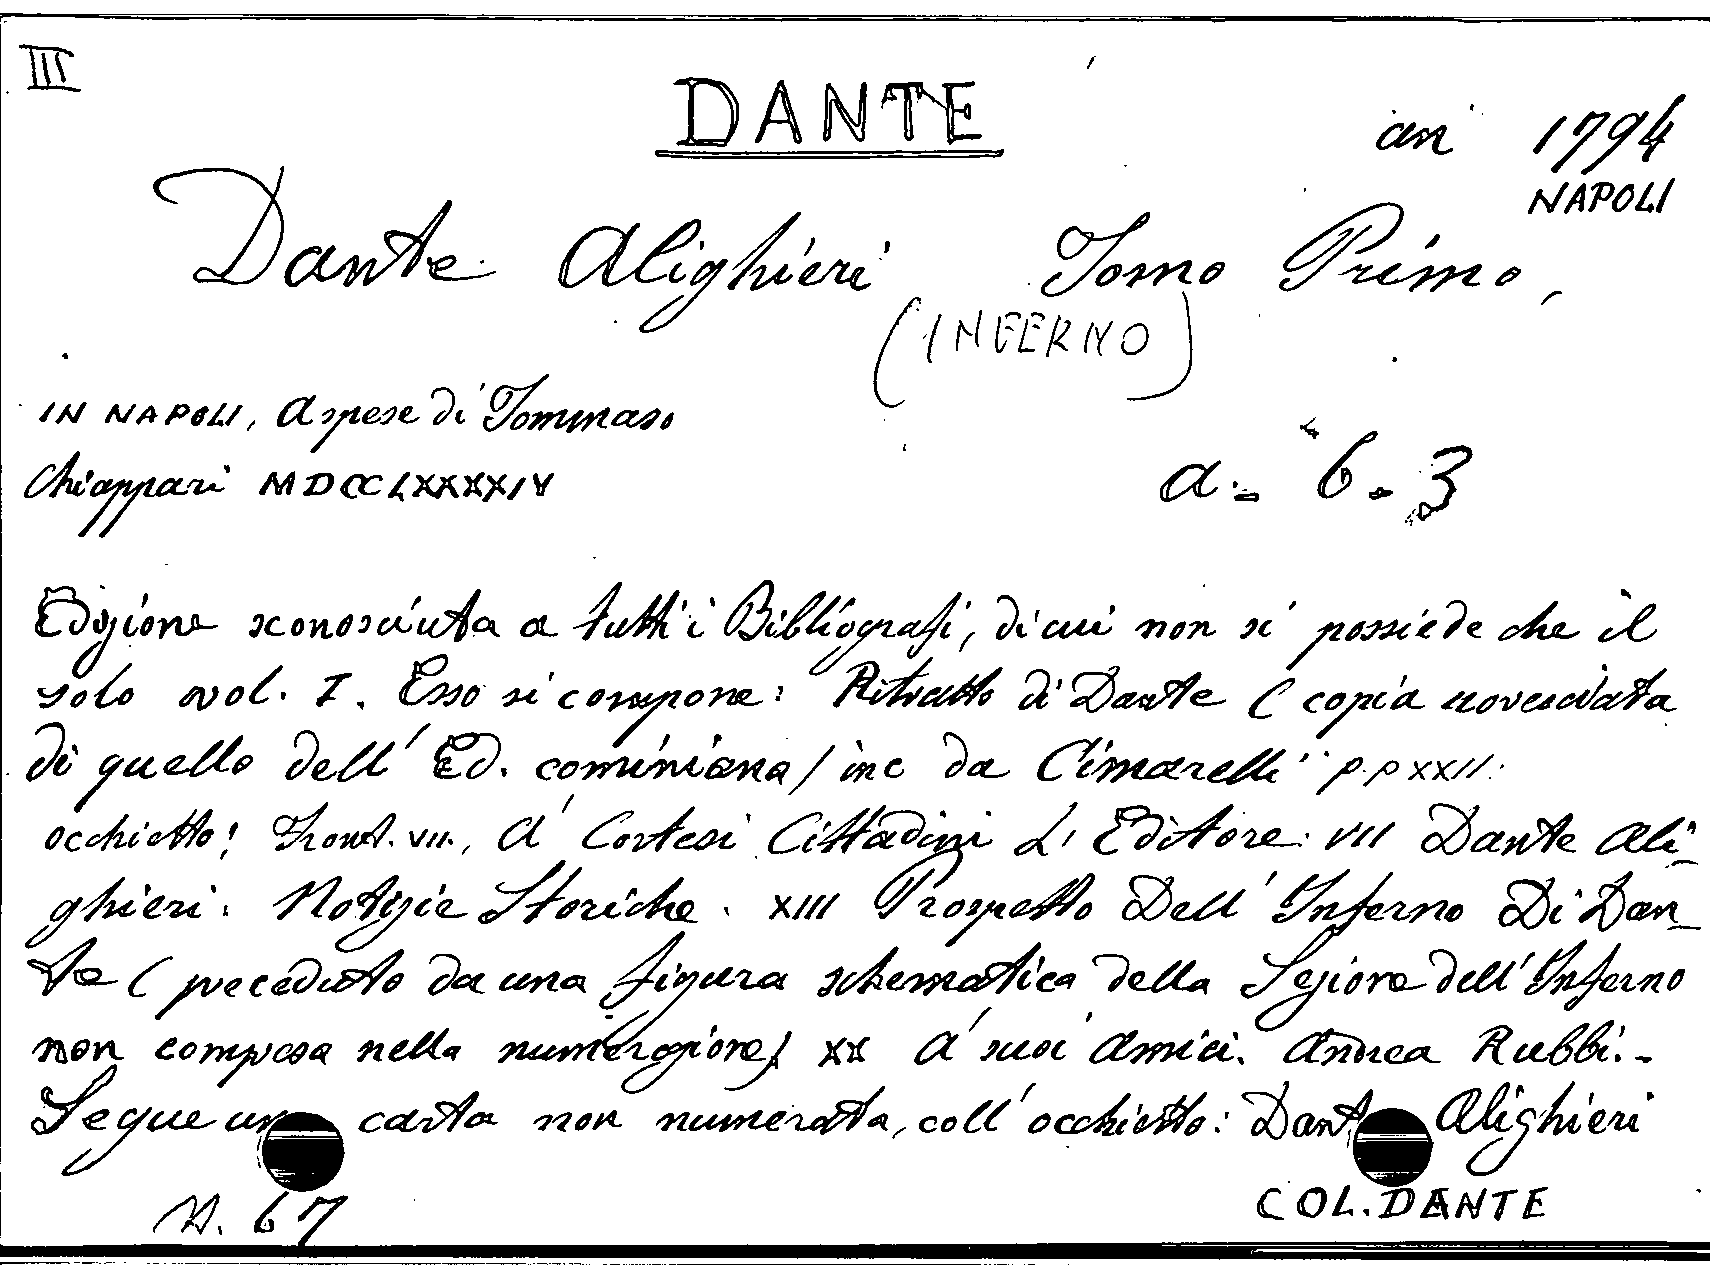 III
DANTE
an 1794
NAPOLI
Dante Alighieri Tomo Primo,
(INFERNO)
IN NAPOLI, A spese di Tommaso
Chiappari MDCCLXXXXIV
a. 6. 3
Edizione sconosciuta a tutti i Bibliografi, di cui non si possiede che il
solo vol. I. Esso si compone: Ritratto di Dante (copia rovesciata
di quello dell' Ed. cominiana) inc da Cimarelli pp XXII.
occhietto; Front. VII., A' Cortesi Cittadini L' Editore. VII Dante Ali-
ghieri. Notizie Storiche. XIII Prospetto Dell' Inferno Di Dan-
te (preceduto da una figura schematica della Sezione dell' Inferno
non compresa nella numerazione) XX A' suoi Amici. Andrea Rubbi.-
Segue una carta non numerata, coll' occhietto: Dante Alighieri
N. 67
COL. DANTE